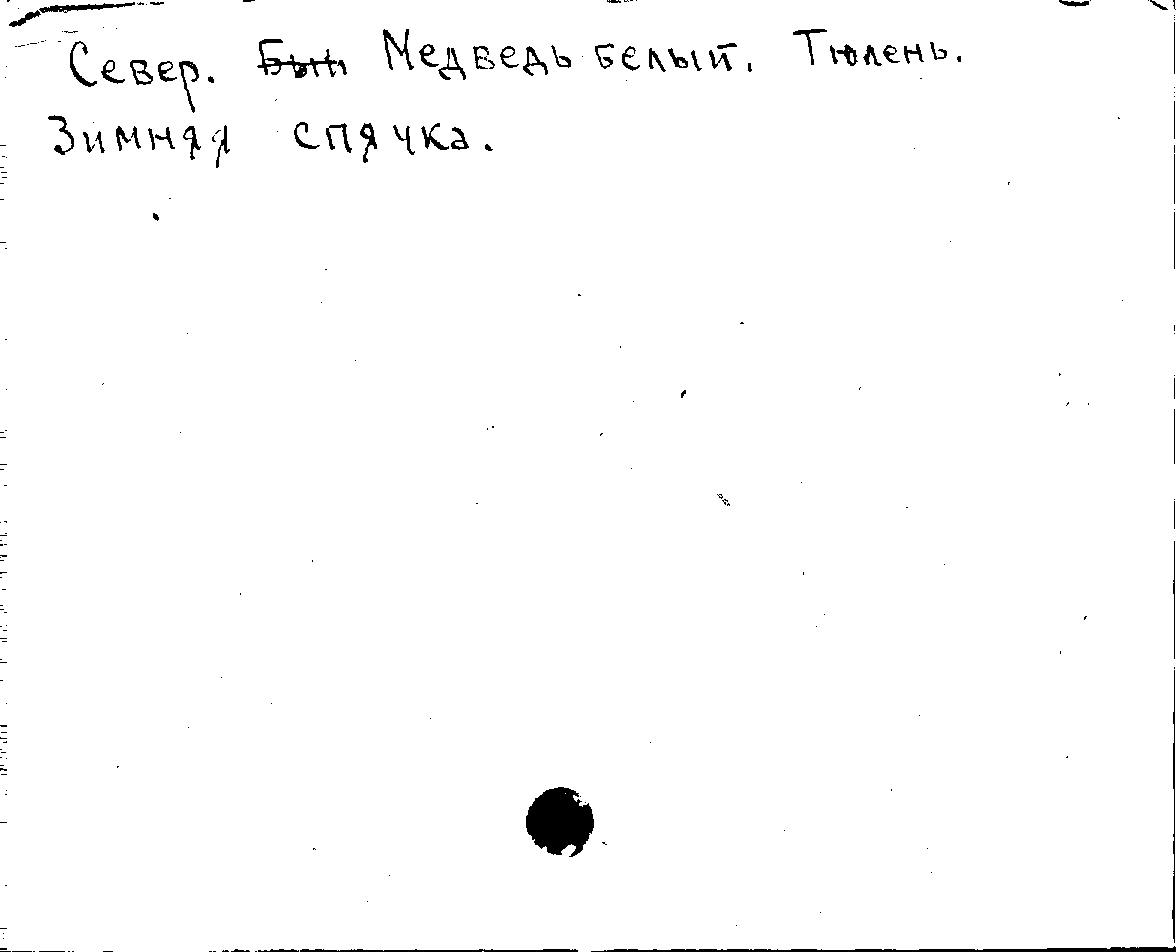 Север. Медведь белый. Тюлень.
Зимняя спячка.